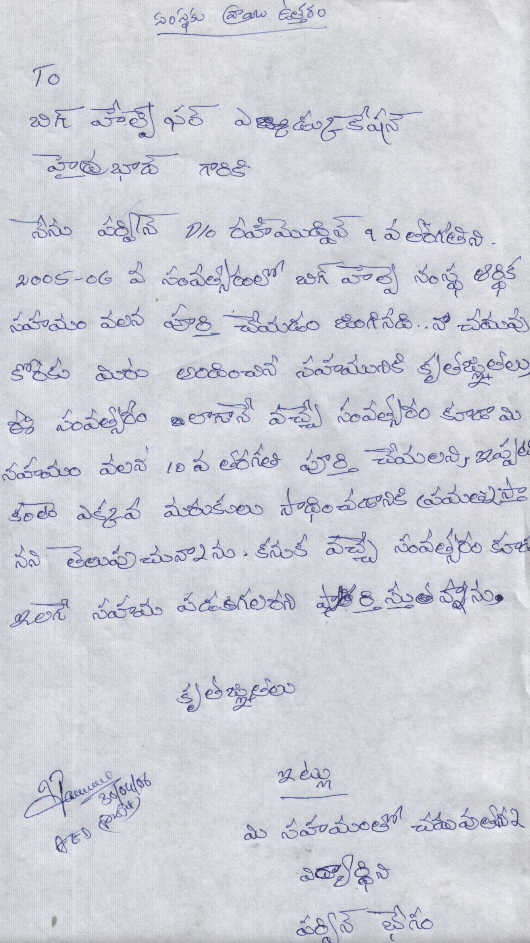 సంస్థకు వ్రాయు ఉత్తరం
To
బిగ్ హెల్ప్ ఫర్ ఎడ్యుకేషన్
హైద్రబాద్ గారికి
నేను పర్వీన్ D/o రహిమొద్దిన్ 9 వ తరగతిని.
2005-06 వ సంవత్సరంలో బిగ్ హెల్ప్ సంస్థ ఆర్థిక
సహయం వలన పూర్తి చేయడం జరిగినది.. నా చదువు
కొరకు మిరు అందించిన సహయానికి కృతజ్ఞతలు
ఈ సంవత్సరం ఇలాగానే వచ్చే సంవత్సరం కూడా మి
సహయం వలన 10 వ తరగతి పూర్తి చేయాలన్ని ఇప్పటి
కంటె ఎక్కువ మరుకులు సాధించడానికి ప్రయత్నిస్తా
నని తెలుపుచున్నాను. కనుక వచ్చే సంవత్సరం కూడ
ఇలాగే సహయ పడతగలరని ప్రార్తిస్తుతన్నాను.
కృతజ్ఞతలు
30/04/06
ఇట్లు
మి సహయంతో చదువుతున్న
విద్యార్థిని
పర్వీన్ బేగం